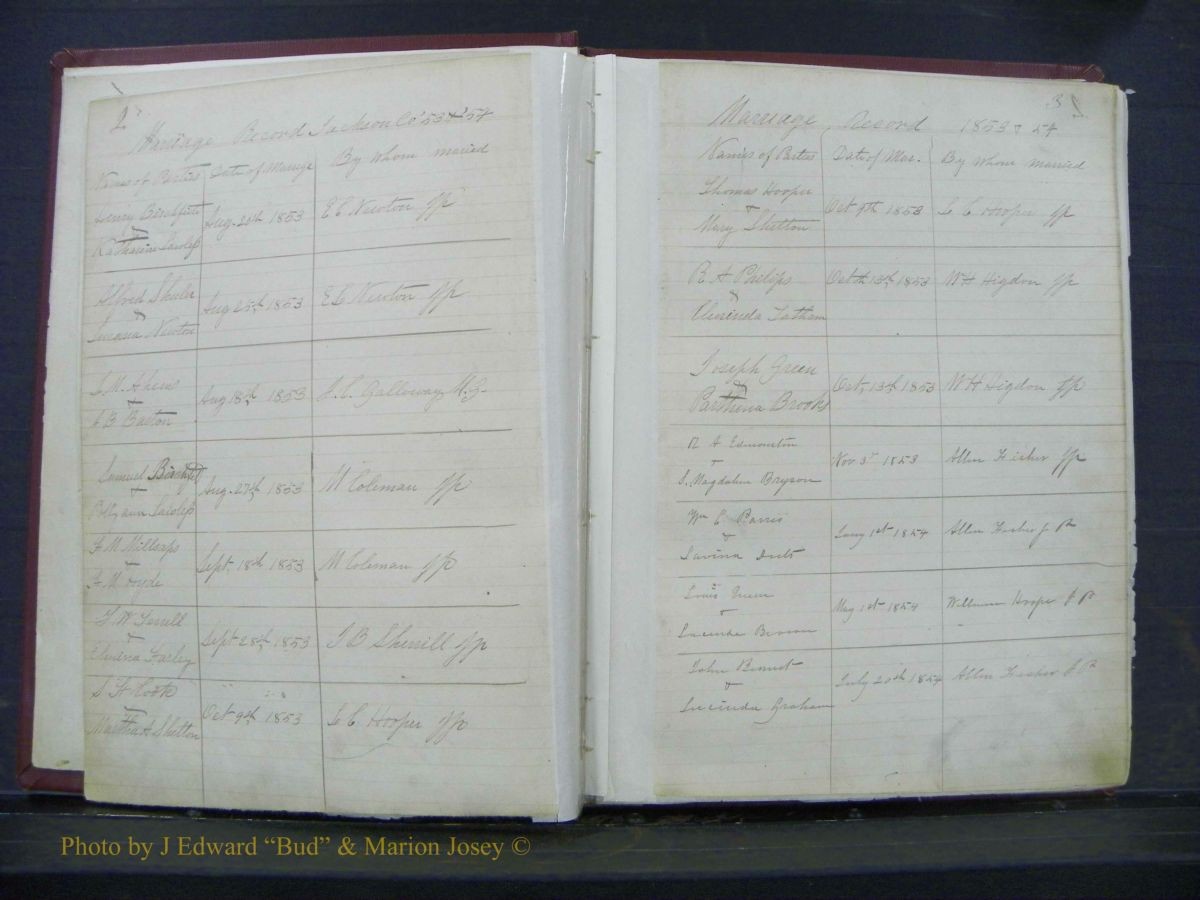 2
Marriage Record Jackson Co '53 & '54
Names of Parties Date of Marriage By Whom married
Henry Birchfield
& Aug. 20th 1853 E C Newton JP
Katharine
Alfred Shuler
& Aug 25th 1853 E C Newton JP
Newton
& Aug 18th 1853 Galloway M.G.
Samuel Birchfield
& Aug. 27th 1853 M Coleman JP
Polly ann
F M Millsaps
& Sept. 18th 1853 M Coleman JP
F M Hyde
Terrell
& Sept 28th 1853 Sherrill JP
Elmina Farley
Cook
& Oct 9th 1853 C C Hooper JP
Martha A Shelton
3
Marriage Record 1853 & 54
Names of Parties Date of Mar. By Whom married
Thomas Hooper
& Oct 9th 1853 C C Hooper JP
Mary Shelton
R A Philips Octth 13th 1853 W H Higdon JP
&
Clurinda Tatham
Joseph Green
& Oct. 13th 1853 W H Higdon JP
Parthena Brooks
R A Edmonston
& Nov. 3rd 1853 Allen Fisher JP
S. Magdalene Bryson
Wm C Parris
& 1st 1854 Allen Fisher J P
Savina
Queen
& May 1st 1854 William Hooper J P
Lucinda Brown
John
& July 20th 1854 Allen Fisher J P
Lucinda Graham
Photo by J Edward “Bud” & Marion Josey ©